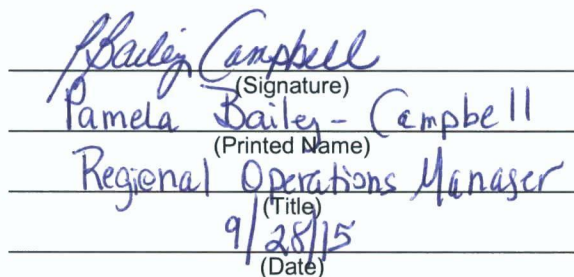 PBailey Campbell
(Signature)
Pamela Bailey-Campbell
(Printed Name)
Regional Operations Manager
(Title)
9/28/15
(Date)